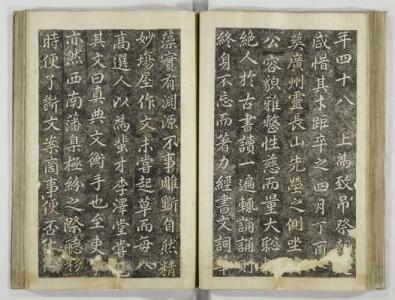 年四十八 上為致吊祭朝
咸惜其才距卒之四月丁酉
葬廣州靈長山先塋之側
公容貌雅整性慈而量大聡
絶人於古書讀一遍輒誦誦則
終身不忘而著力經書文詞
藻實有淵源不事雕斲自然精
妙 屋作文未嘗起草而每入
高選人以為蜚才李澤堂嘗
其文曰真典文衡手也至吏
亦然西南藩臬極紛之際聽移
時便了斷文案啇事便否